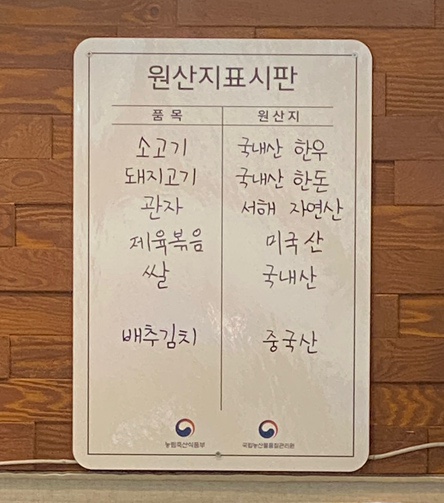 원산지표시판
품목 원산지
소고기 국내산 한우
돼지고기 국내산 한돈
관자 서해 자연산
제육볶음 미국산
쌀 국내산
배추김치 중국산
농림축산식품부 국립농산물품질관리원